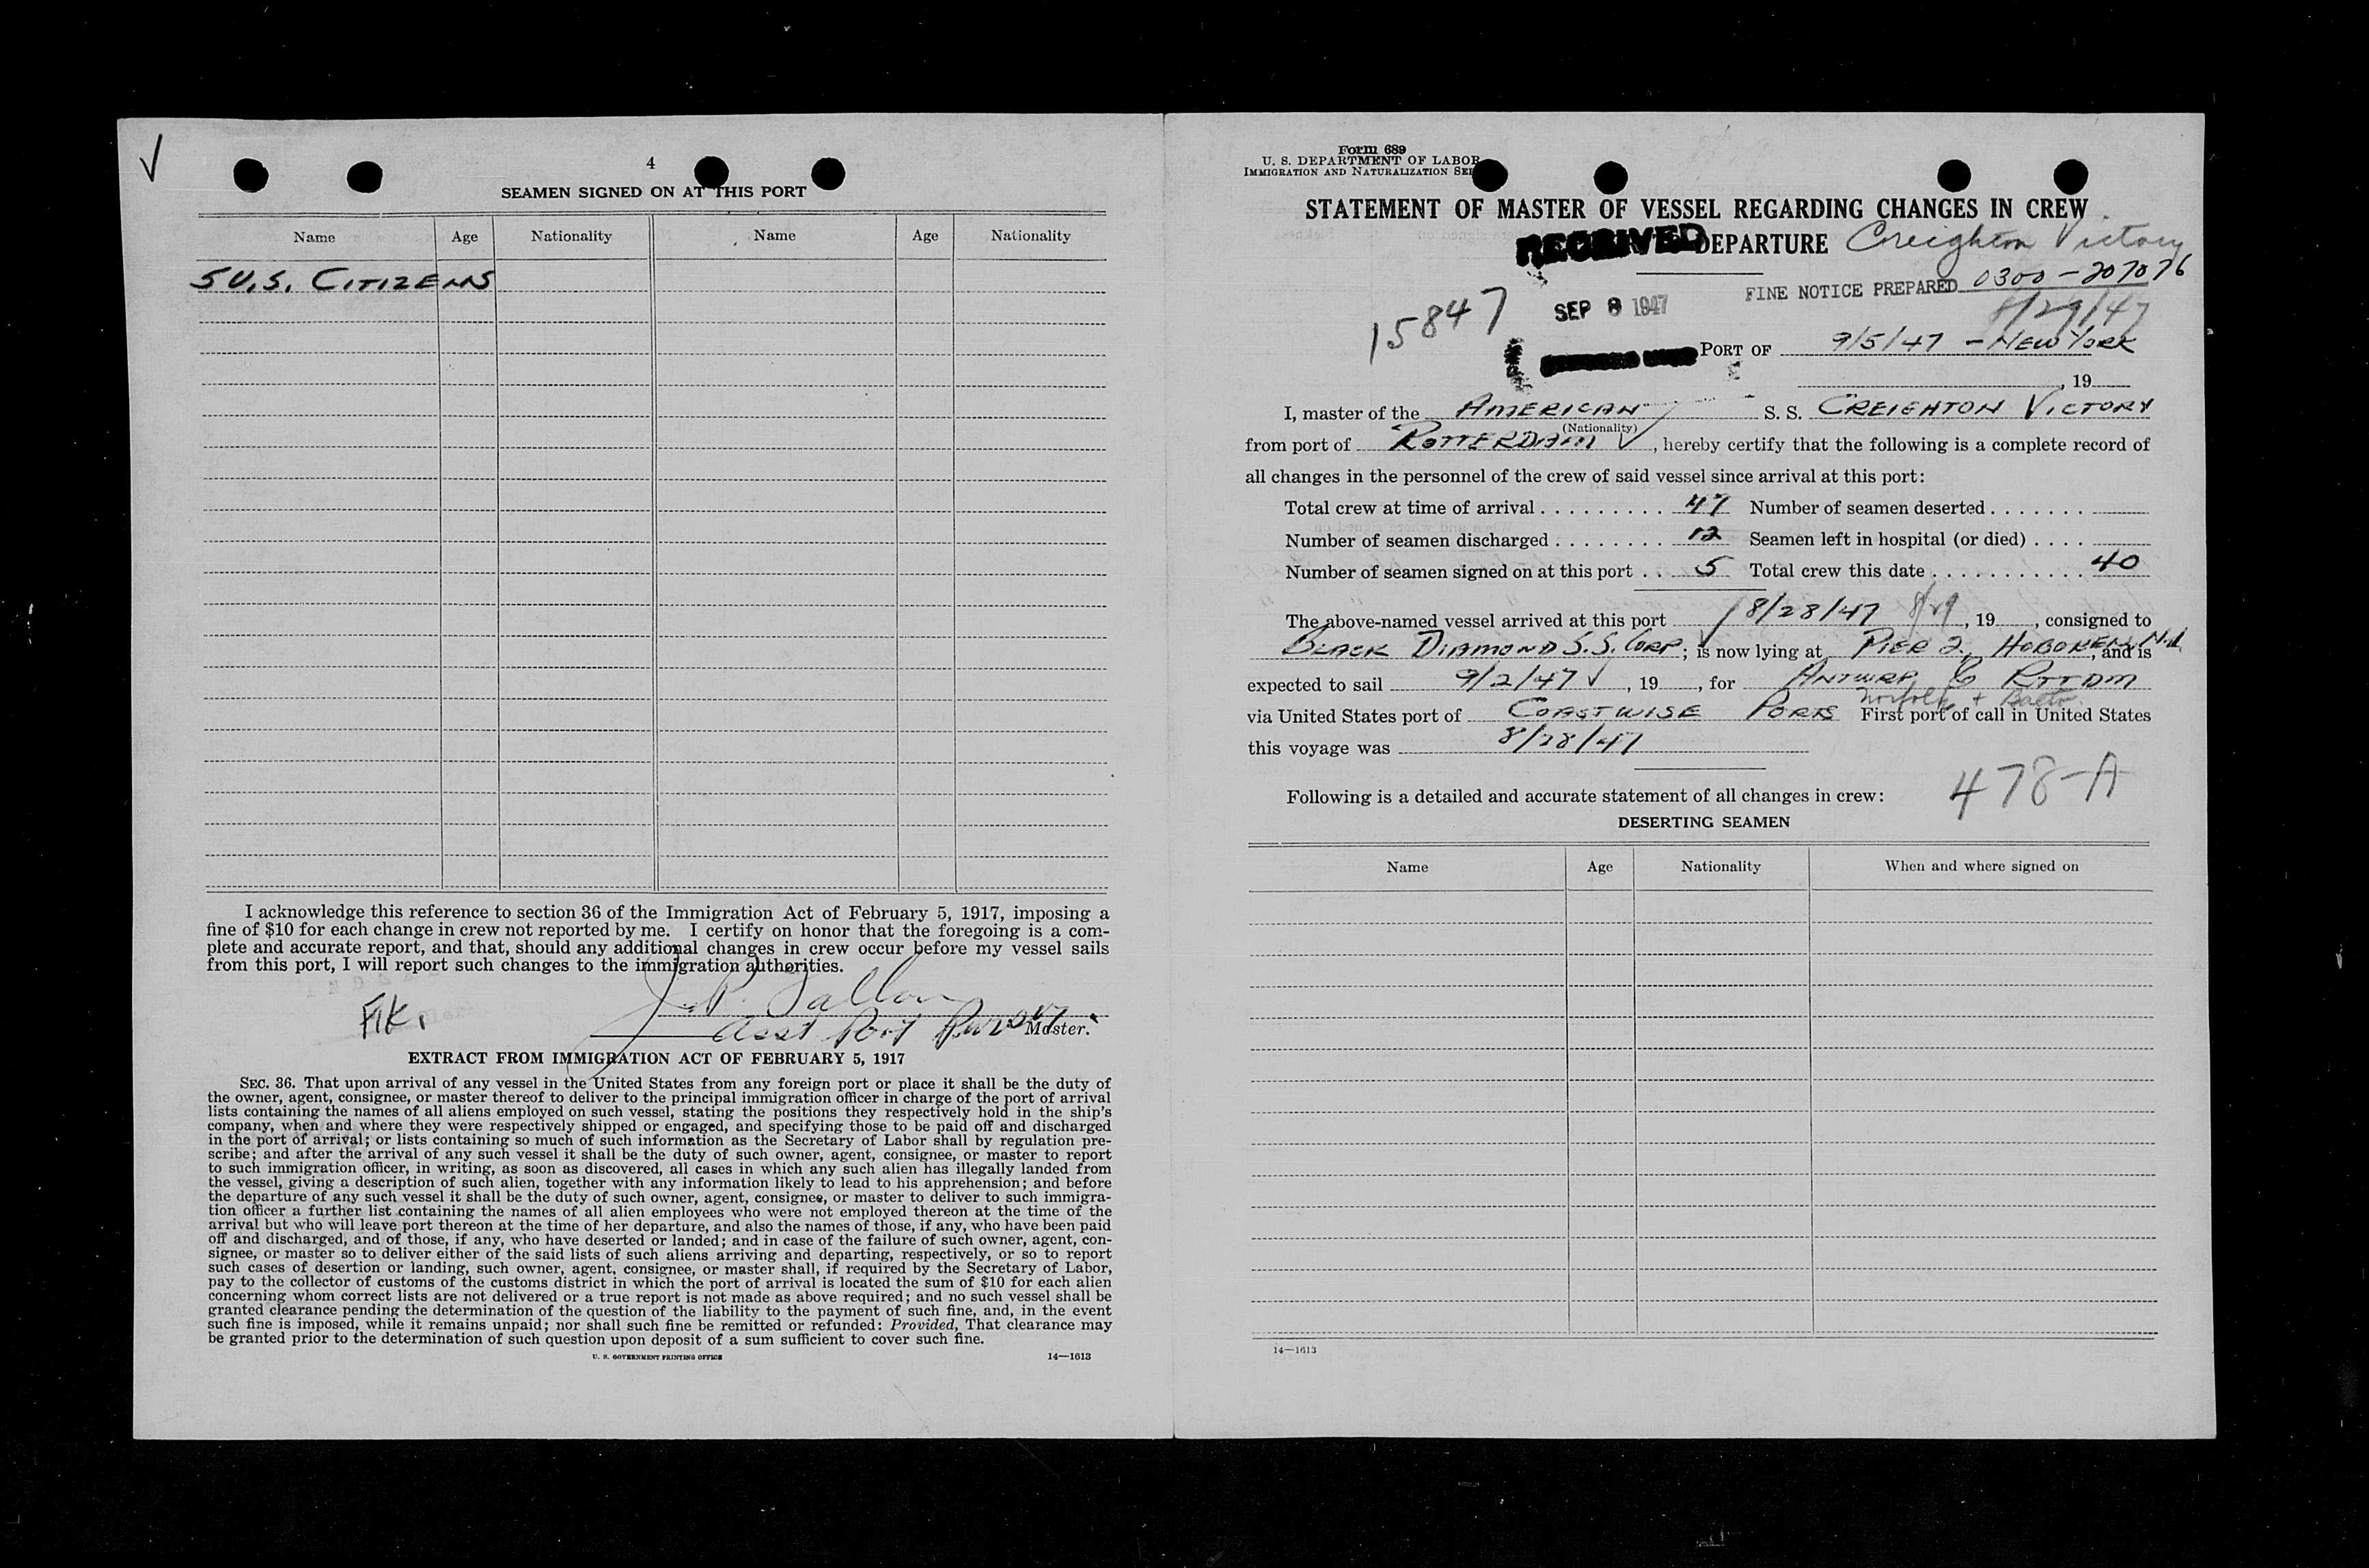 4
SEAMEN SIGNED ON AT THIS PORT
Name Age Nationality Name Age Nationality
5 U.S. CITIZENS
I acknowledge this reference to section 36 of the Immigration Act of February 5, 1917, imposing a
fine of $10 for each change in crew not reported by me. I certify on honor that the foregoing is a com-
plete and accurate report, and that, should any additional changes in crew occur before my vessel sails
from this port, I will report such changes to the immigration authorities.
J. P. Fallon
Asst Port Purser Master.
EXTRACT FROM IMMIGRATION ACT OF FEBRUARY 5, 1917
SEC. 36. That upon arrival of any vessel in the United States from any foreign port or place it shall be the duty of
the owner, agent, consignee, or master thereof to deliver to the principal immigration officer in charge of the port of arrival
lists containing the names of all aliens employed on such vessel, stating the positions they respectively hold in the ship's
company, when and where they were respectively shipped or engaged, and specifying those to be paid off and discharged
in the port of arrival; or lists containing so much of such information as the Secretary of Labor shall by regulation pre-
scribe; and after the arrival of any such vessel it shall be the duty of such owner, agent, consignee, or master to report
to such immigration officer, in writing, as soon as discovered, all cases in which any such alien has illegally landed from
the vessel, giving a description of such alien, together with any information likely to lead to his apprehension; and before
the departure of any such vessel it shall be the duty of such owner, agent, consignee, or master to deliver to such immigra-
tion officer a further list containing the names of all alien employees who were not employed thereon at the time of the
arrival but who will leave port thereon at the time of her departure, and also the names of those, if any, who have been paid
off and discharged, and of those, if any, who have deserted or landed; and in case of the failure of such owner, agent, con-
signee, or master so to deliver either of the said lists of such aliens arriving and departing, respectively, or so to report
such cases of desertion or landing, such owner, agent, consignee, or master shall, if required by the Secretary of Labor,
pay to the collector of customs of the customs district in which the port of arrival is located the sum of $10 for each alien
concerning whom correct lists are not delivered or a true report is not made as above required; and no such vessel shall be
granted clearance pending the determination of the question of the liability to the payment of such fine, and, in the event
such fine is imposed, while it remains unpaid; nor shall such fine be remitted or refunded: Provided, That clearance may
be granted prior to the determination of such question upon deposit of a sum sufficient to cover such fine.
U. S. GOVERNMENT PRINTING OFFICE 14—1613
Form 689
U. S. DEPARTMENT OF LABOR
IMMIGRATION AND NATURALIZATION SER
STATEMENT OF MASTER OF VESSEL REGARDING CHANGES IN CREW
RECEIVED DEPARTURE Creighton Victory
FINE NOTICE PREPARED 0300-207076
15847 SEP 8 1947 8/29/47
PORT OF 9/5/47 - NEW YORK
, 19
I, master of the AMERICAN S. S. CREIGHTON VICTORY
(Nationality)
from port of ROTTERDAM, hereby certify that the following is a complete record of
all changes in the personnel of the crew of said vessel since arrival at this port:
Total crew at time of arrival . . . . . . . . . 47 Number of seamen deserted . . . . . . .
Number of seamen discharged . . . . . . . . 12 Seamen left in hospital (or died) . . . .
Number of seamen signed on at this port . . 5 Total crew this date . . . . . . . . . . . 40
The above-named vessel arrived at this port 8/28/47 8/29, 19, consigned to
BLACK DIAMOND S.S. CORP; is now lying at PIER 2, HOBOKEN N.J., and is
expected to sail 9/2/47, 19, for ANTWRP & RTTDM
Norfolk + Balto.
via United States port of COASTWISE PORTS First port of call in United States
this voyage was 8/28/47
478-A
Following is a detailed and accurate statement of all changes in crew:
DESERTING SEAMEN
Name Age Nationality When and where signed on
14—1613